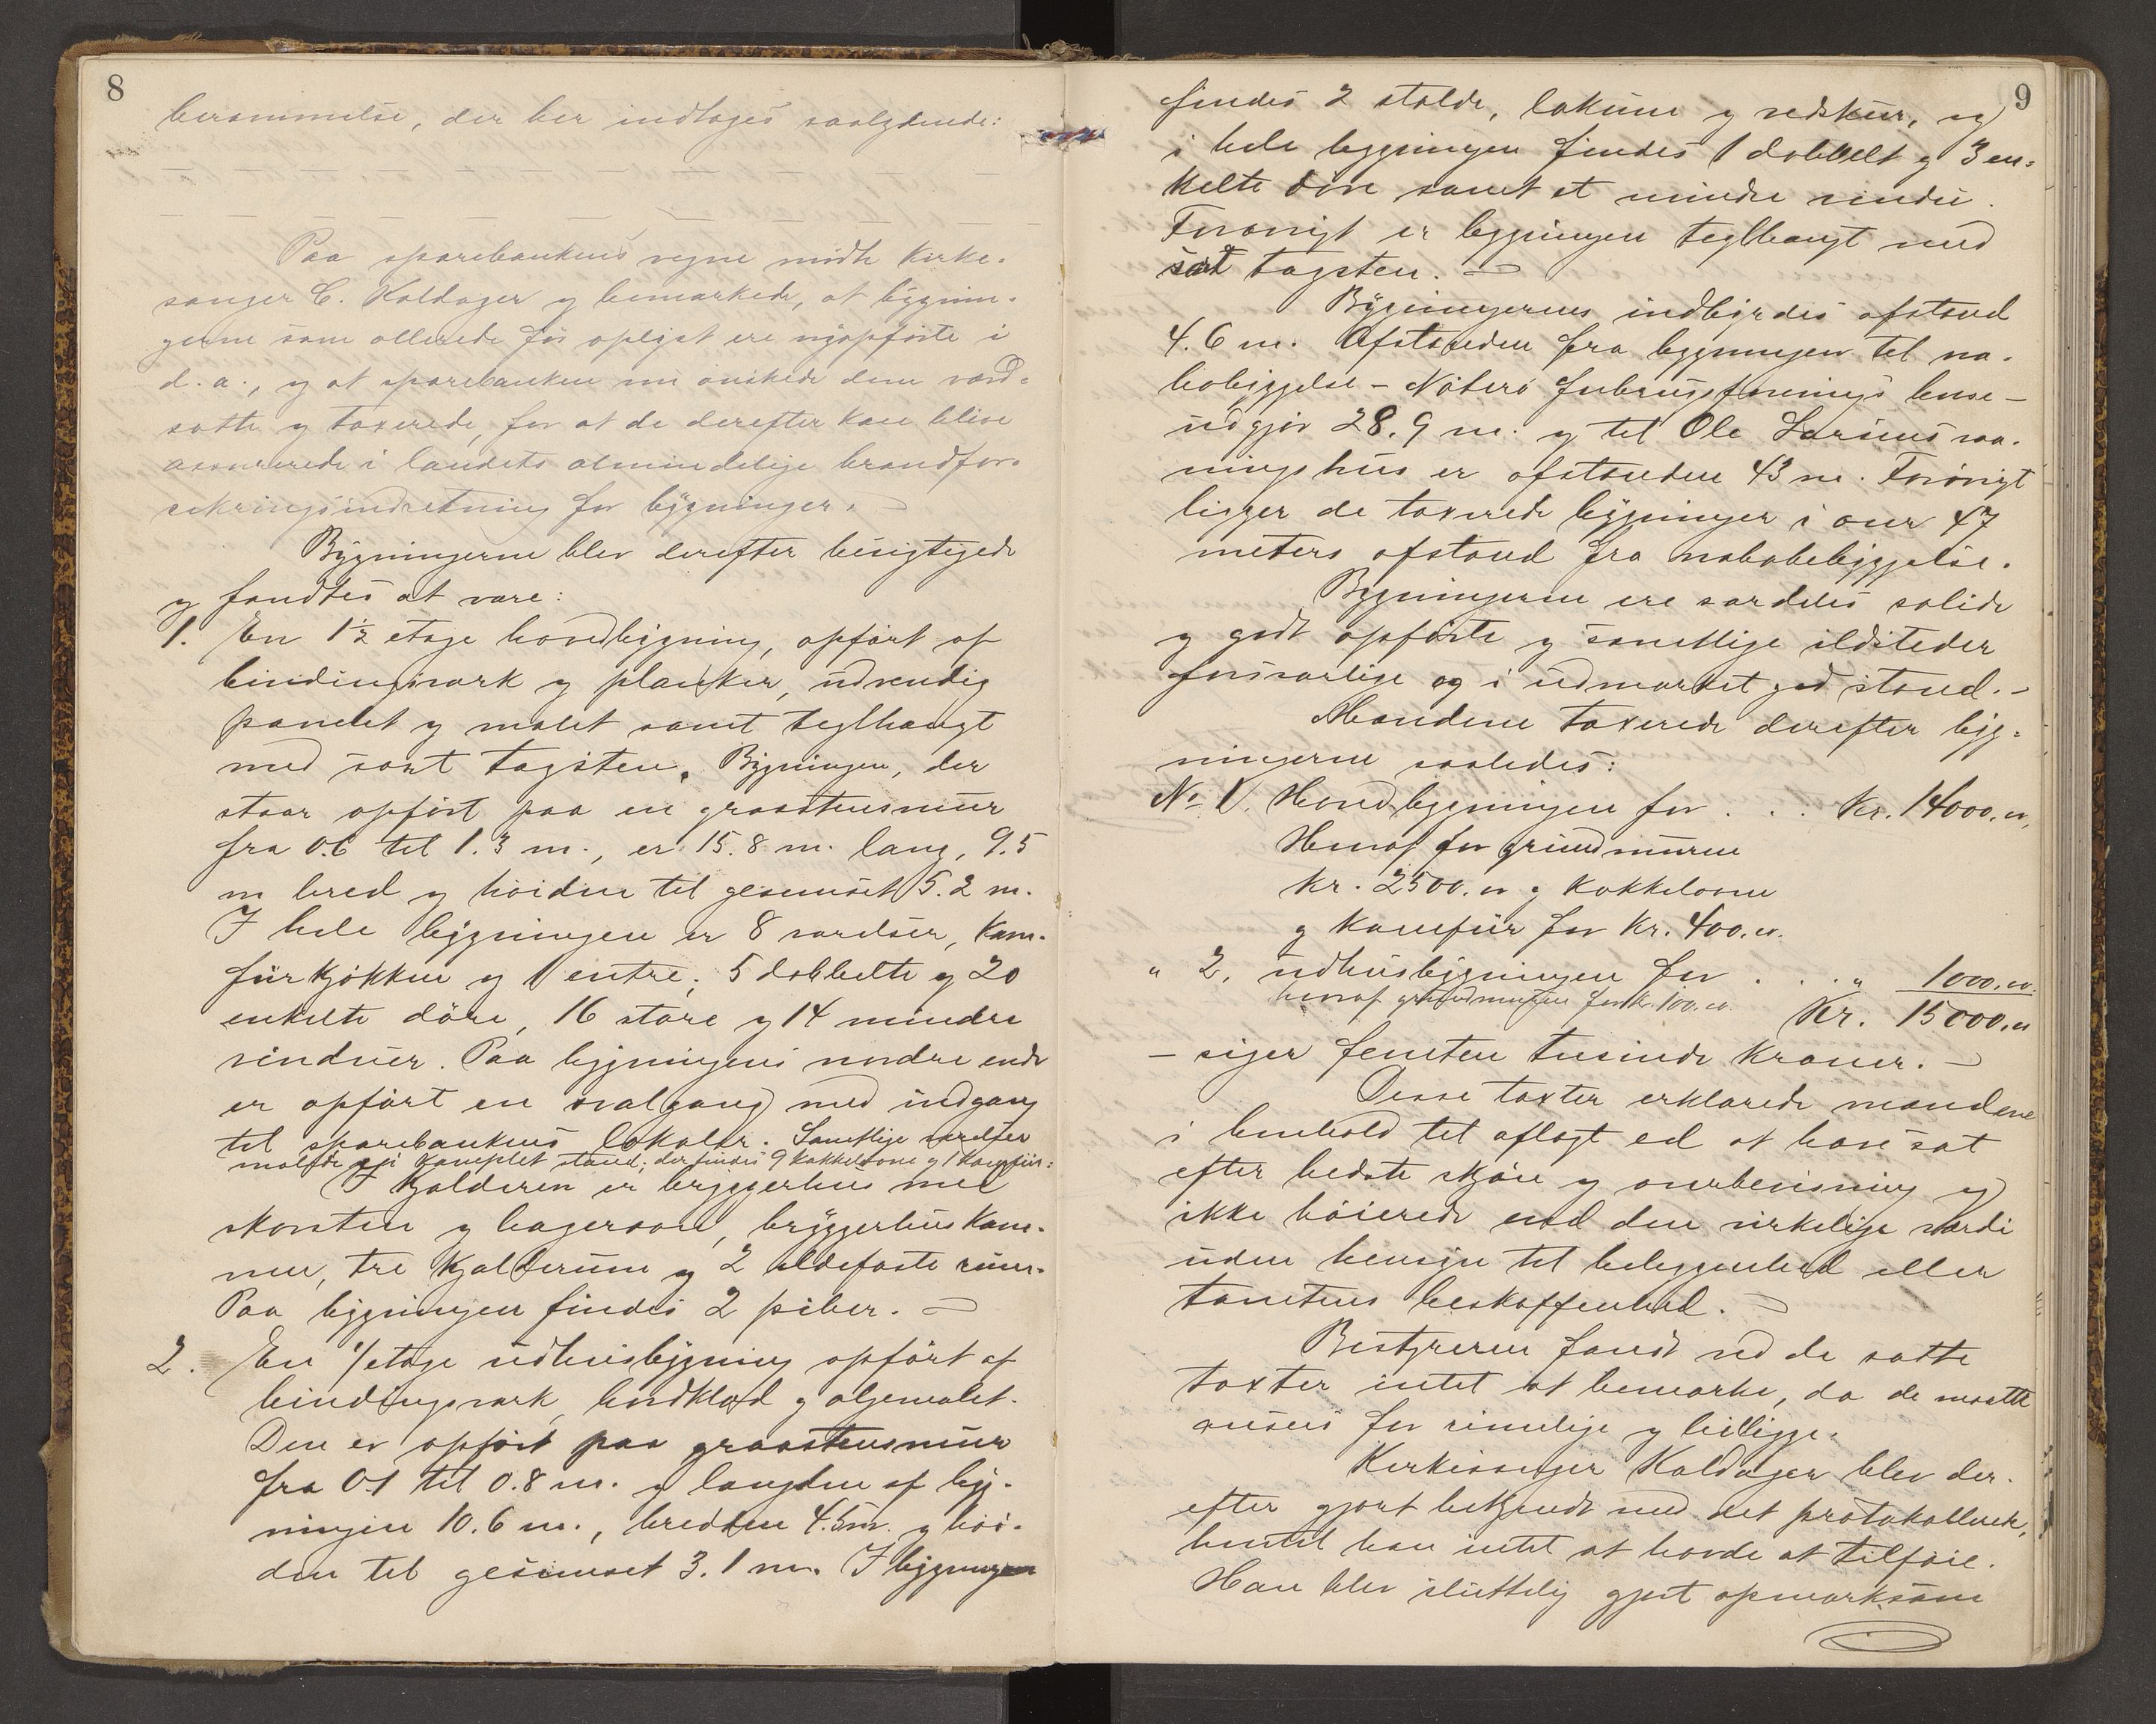 8
berammelse, der her indtages saalydende:
Paa sparebankens vegne mödte Kirke-
sanger C. Kaldager og bemærkede, at bygnin-
gerne som allerede för oplyst ere nyopförte i
d. a., og at sparebanken nu önskede dem værd-
satte og taxerede, for at de derefter kan blive
assurerede i landets almindelige brandfor-
sikringsindretning for bygninger.
Bygningerne blev derefter besigtigede
og fandtes at være:
1. En 1½ etage hovedbygning, opfört af
bindingsværk og planker, udvendig
panelet og malet samt teglhængt
med sort tagsten. Bygningen, der
staar opfört paa en graastensmur
fra 0.6 til 1.3 m., er 15.8 m. lang, 9.5
m bred og höiden til gesimset 5.2 m.
I hele bygningen er 8 værelser, Kom-
fürkjökken og 1 entre; 5 dobbelte og 20
enkelte döre, 16 store og 14 mindre
vinduer. Paa bygningens nordre ende
er opfört en svalgang med indgang
til sparebankens lokaler. Samtlige værelser
malede og i komplet stand; der findes 9 kakkelovne og 1 komfür.
I Kjælderen er bryggerhus med
skorsten og bagerovn, bryggerhuskam-
mer, tre Kjælderrum og 2 ildsfaste rum.
Paa bygningen findes 2 piber.
2. En 1 etage udhusbygning opfört af
bindingsværk, bordklæd og oljemalet.
Den er opfört paa graastensmur
fra 0.1 til 0.8 m. og længden af byg-
ningen 10.6 m., bredden 4.5 m. og höi-
den til gesimset 3.1 m. I bygningen
9
findes 2 stalde, lokum og vedskur, og
i hele bygningen findes 1 dobbelt og 3 en-
kelte döre samt et mindre vindu.
Forövrigt er bygningen teglhængt med
sort tagsten.
Bygningernes indbyrdes afstand
4.6 m. Afstanden fra bygningen til na-
bobyggelse - Nöterö forbrugsforenings huse -
udgjör 28.9 m. og til Ole Larsens vaa-
ningshus er afstanden 43 m. Forövrigt
ligger de taxerede bygninger i over 47
meters afstand fra nabobebyggelse.
Bygningerne ere særdeles solide
og godt opförte og samtlige ildsteder
forsvarlige og i udmærket god stand.
Mændene taxerede derefter byg-
ningerne saaledes:
No 1. Hovedbygningen for . . . Kr. 14000.00
Heraf for grundmuren
Kr. 2500.00 og kakkelovne
og Komfür for Kr. 400.00.
" 2. udhusbygningen for . . . " 1000.00.
heraf grundmuren for kr. 100.00.
Kr. 15000.00
- siger femten tusinde Kroner. -
Disse taxter erklærede mændene
i henhold til aflagt ed at have sat
efter bedste skjön og overbevisning og
ikke höiere end den virkelige værdi
uden hensyn til beliggenhed eller
tomtens beskaffenhed.
Bestyreren fandt ved de satte
taxter intet at bemærke, da de maatte
ansees for rimelige og billige.
Kirkesanger Kaldager blev der-
efter gjort bekjendt med det protokollerede,
hvortil han intet at havde at tilföie.
Han blev sluttelig gjort opmærksom